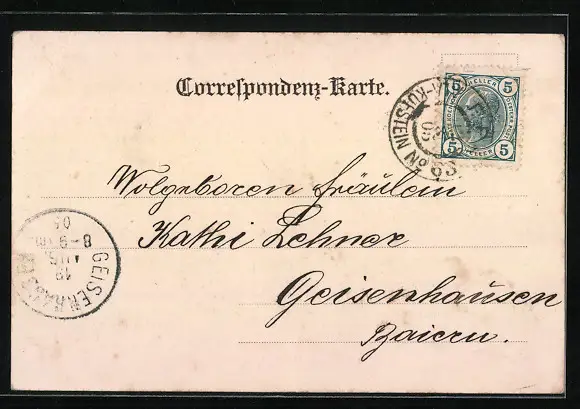 Correspondenz-Karte.
5 HELLER 5
5 5
KUFSTEIN
Wolgeboren Fräulein
Kathi Lehner
Geisenhausen
Baiern.
GEISENHAUSEN
19
AUG.
8-9